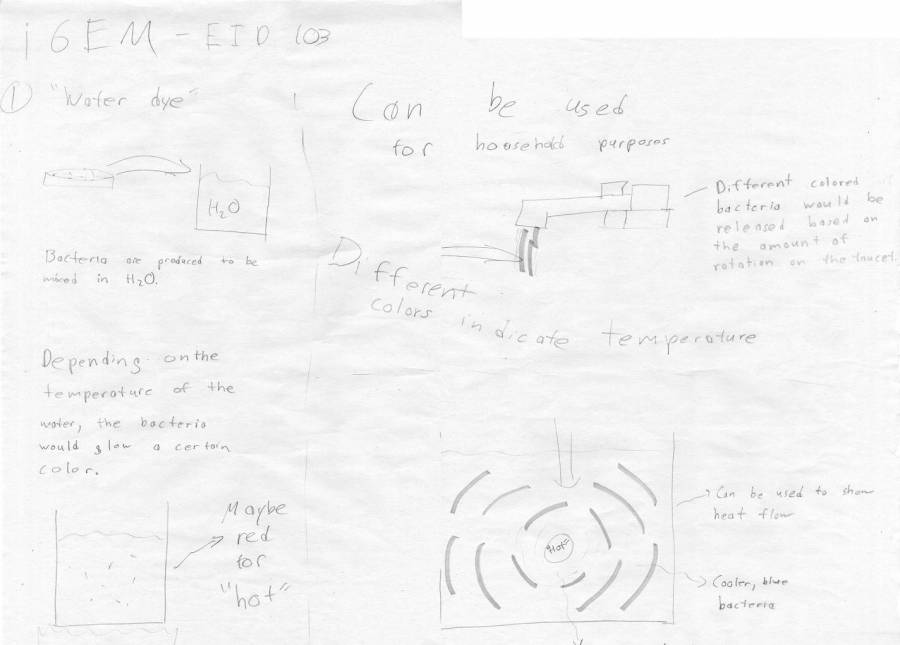 iGEM - EID 103
① "Water dye"
H₂O
Bacteria are produced to be
mixed in H₂O.
Depending on the
temperature of the
water, the bacteria
would glow a certain
color.
Maybe
red
for
"hot"
Can be used
for household purposes
Different colored
bacteria would be
released based on
the amount of
rotation on the faucet.
Different
colors indicate temperature
"Hot"
Can be used to show
heat flow
Cooler, blue
bacteria